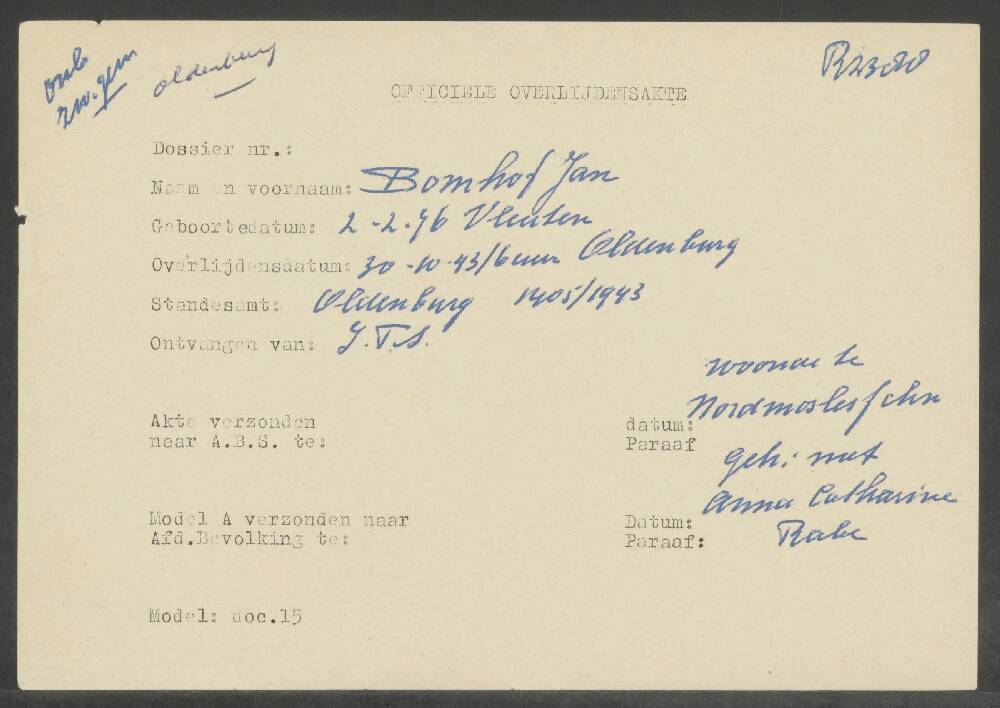 oldenburg
OFFICIELE OVERLIJDENSAKTE
Dossier nr.:
Naam en voornaam: Bomhof Jan
Geboortedatum: 2-2-76 Vleuten
Overlijdensdatum: 30-10-43/6uur Oldenburg
Standesamt: Oldenburg 1405/1943
Ontvangen van: I.T.S.
woonde te
Akte verzonden
naar A.B.S. te:
datum:
Paraaf
geh. met
Anna Catharine
Model A verzonden naar
Afd.Bevolking te:
Datum:
Paraaf: Rabe
Model: doc.15